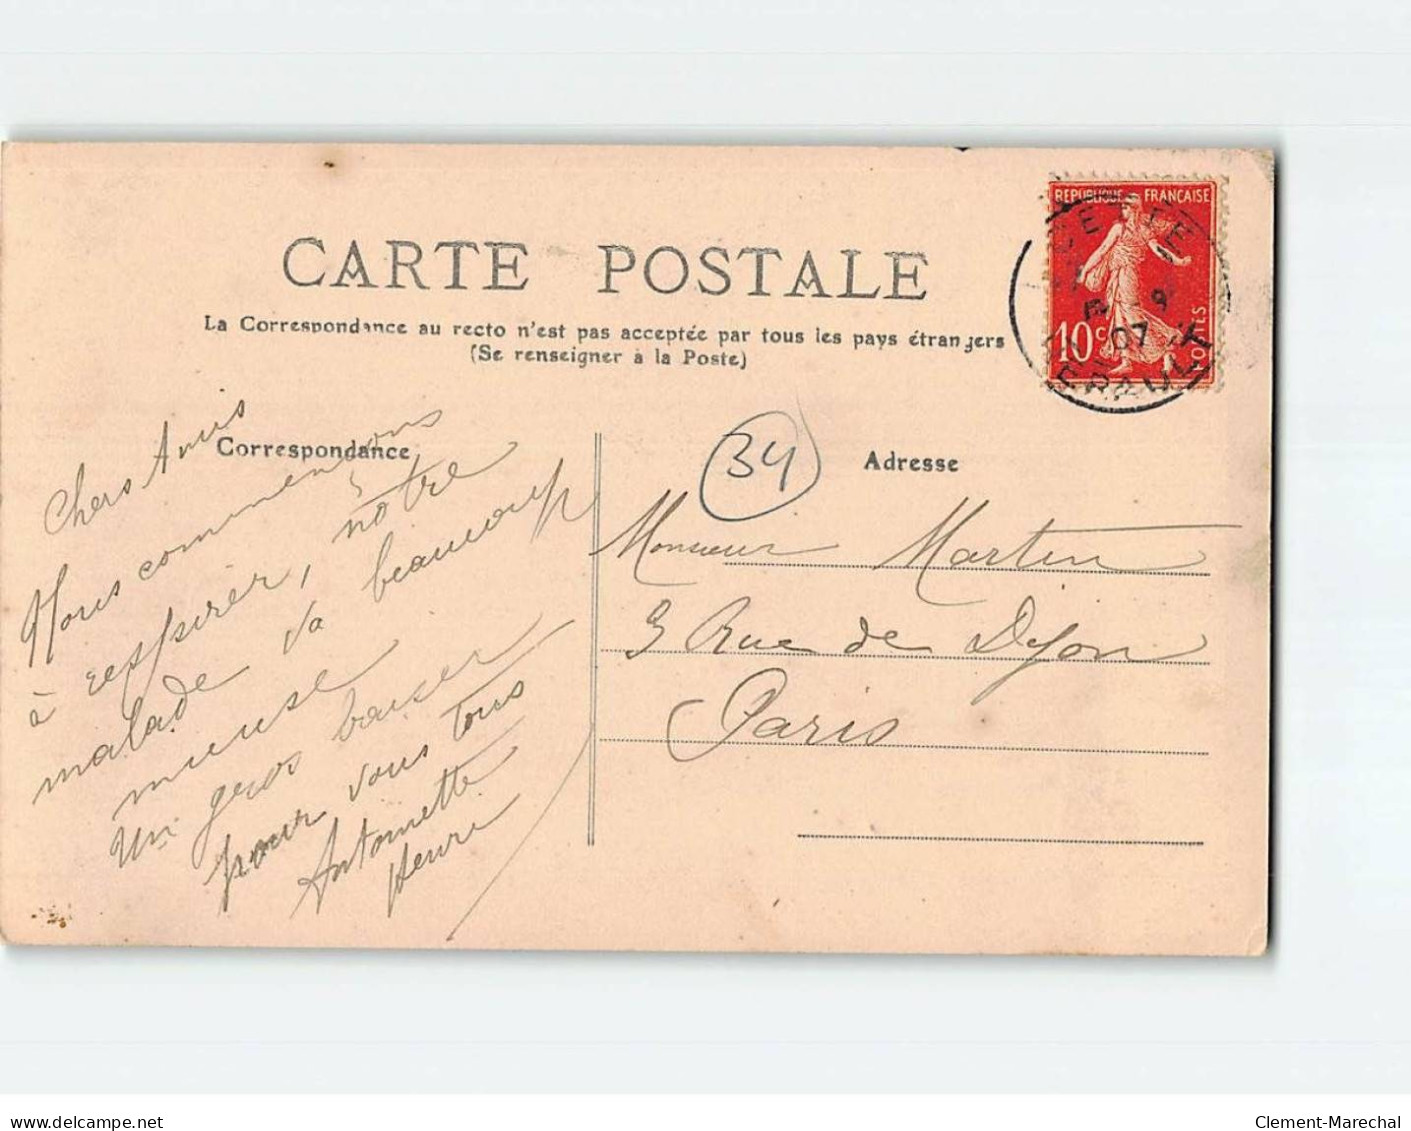 CARTE POSTALE
La Correspondance au recto n'est pas acceptée par tous les pays étrangers
(Se renseigner à la Poste)
REPUBLIQUE FRANÇAISE
10c
POSTES
07
HERAULT
Correspondance
34
Adresse
Chers Amis
Nous commençons
à respirer, nôtre
malade va beaucoup
mieuse
Un gros baiser
pour vous tous
Antoinette
Henri
Monsieur Martin
3 Rue de Dijon
Paris
delcampe.net
Clement-Marechal